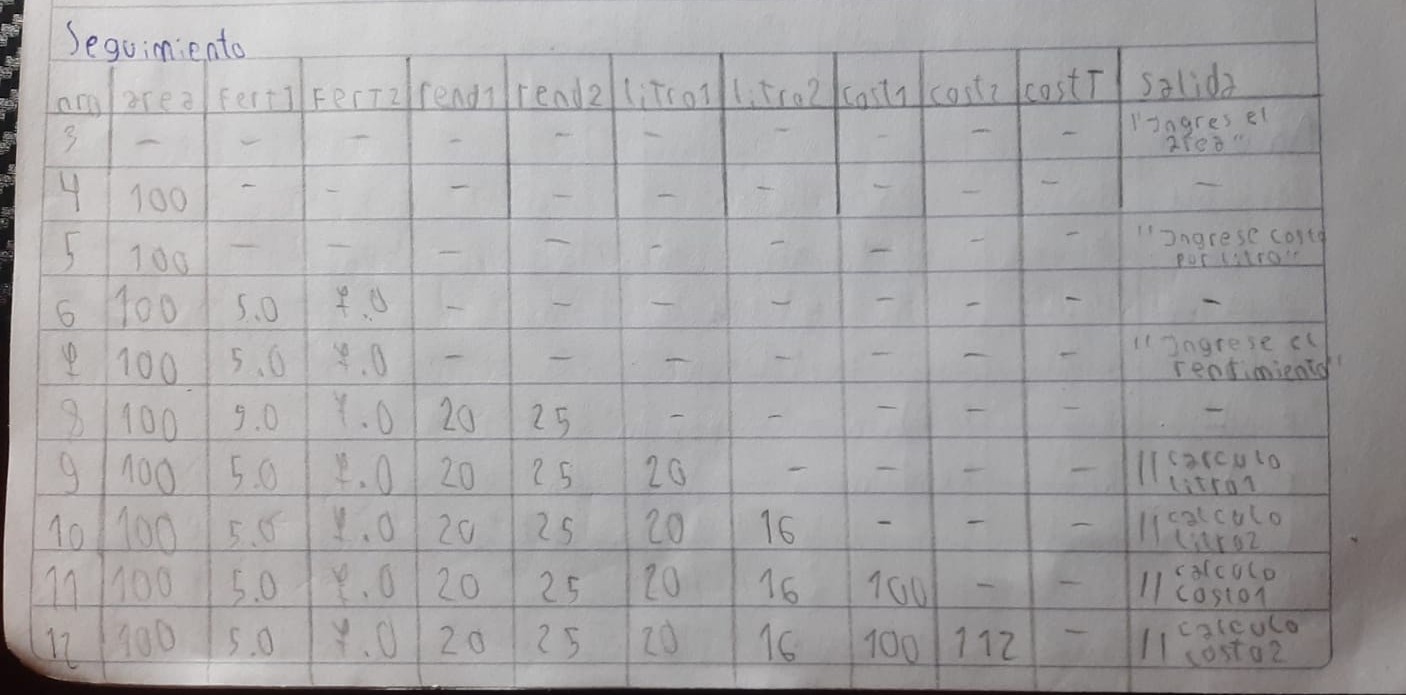 Seguimiento
nro area Fert1 Fert2 rend1 rend2 litro1 litro2 cost1 cost2 costT Salida
3 - - - - - - - - - - "Ingres el area"
4 100 - - - - - - - - - -
5 100 - - - - - - - - - "Ingrese costo por litro"
6 100 5.0 7.0 - - - - - - - -
7 100 5.0 7.0 - - - - - - - "Ingrese el rendimiento"
8 100 5.0 7.0 20 25 - - - - - -
9 100 5.0 7.0 20 25 20 - - - - // calculo litro1
10 100 5.0 7.0 20 25 20 16 - - - // calculo litro2
11 100 5.0 7.0 20 25 20 16 100 - - // calculo costo1
12 100 5.0 7.0 20 25 20 16 100 112 - // calculo costo2